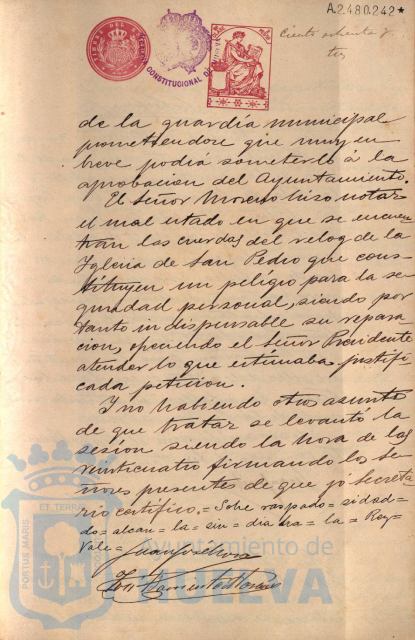 A.2.480.242*
Ciento ochenta y
tres
CONSTITUCIONAL DE
de la guardia municipal
prometiendose que muy en
breve podrá someterlo á la
aprobacion del Ayuntamiento.
El Señor Moreno hizo notar
el mal estado en que se encuen
tran las cuerdas del relog de la
Iglesia de San Pedro que cons-
tituyen un peligro para la se-
guridad personal, siendo por
tanto indispensable su repara
cion, ofreciendo el Señor Presidente
atender lo que estimaba justifi
cada peticion.
Y no habiendo otro asunto
de que tratar se levantó la
sesion siendo la hora de las
veinticuatro firmando los Se
ñores presentes de que yo Secreta
rio certifico,= Sobre raspado = sidad=
do= alcan = la = sin = dia = la = Rey=
Vale=
PORTUS MARIS
ET TERRAE
Ayuntamiento de
HUELVA